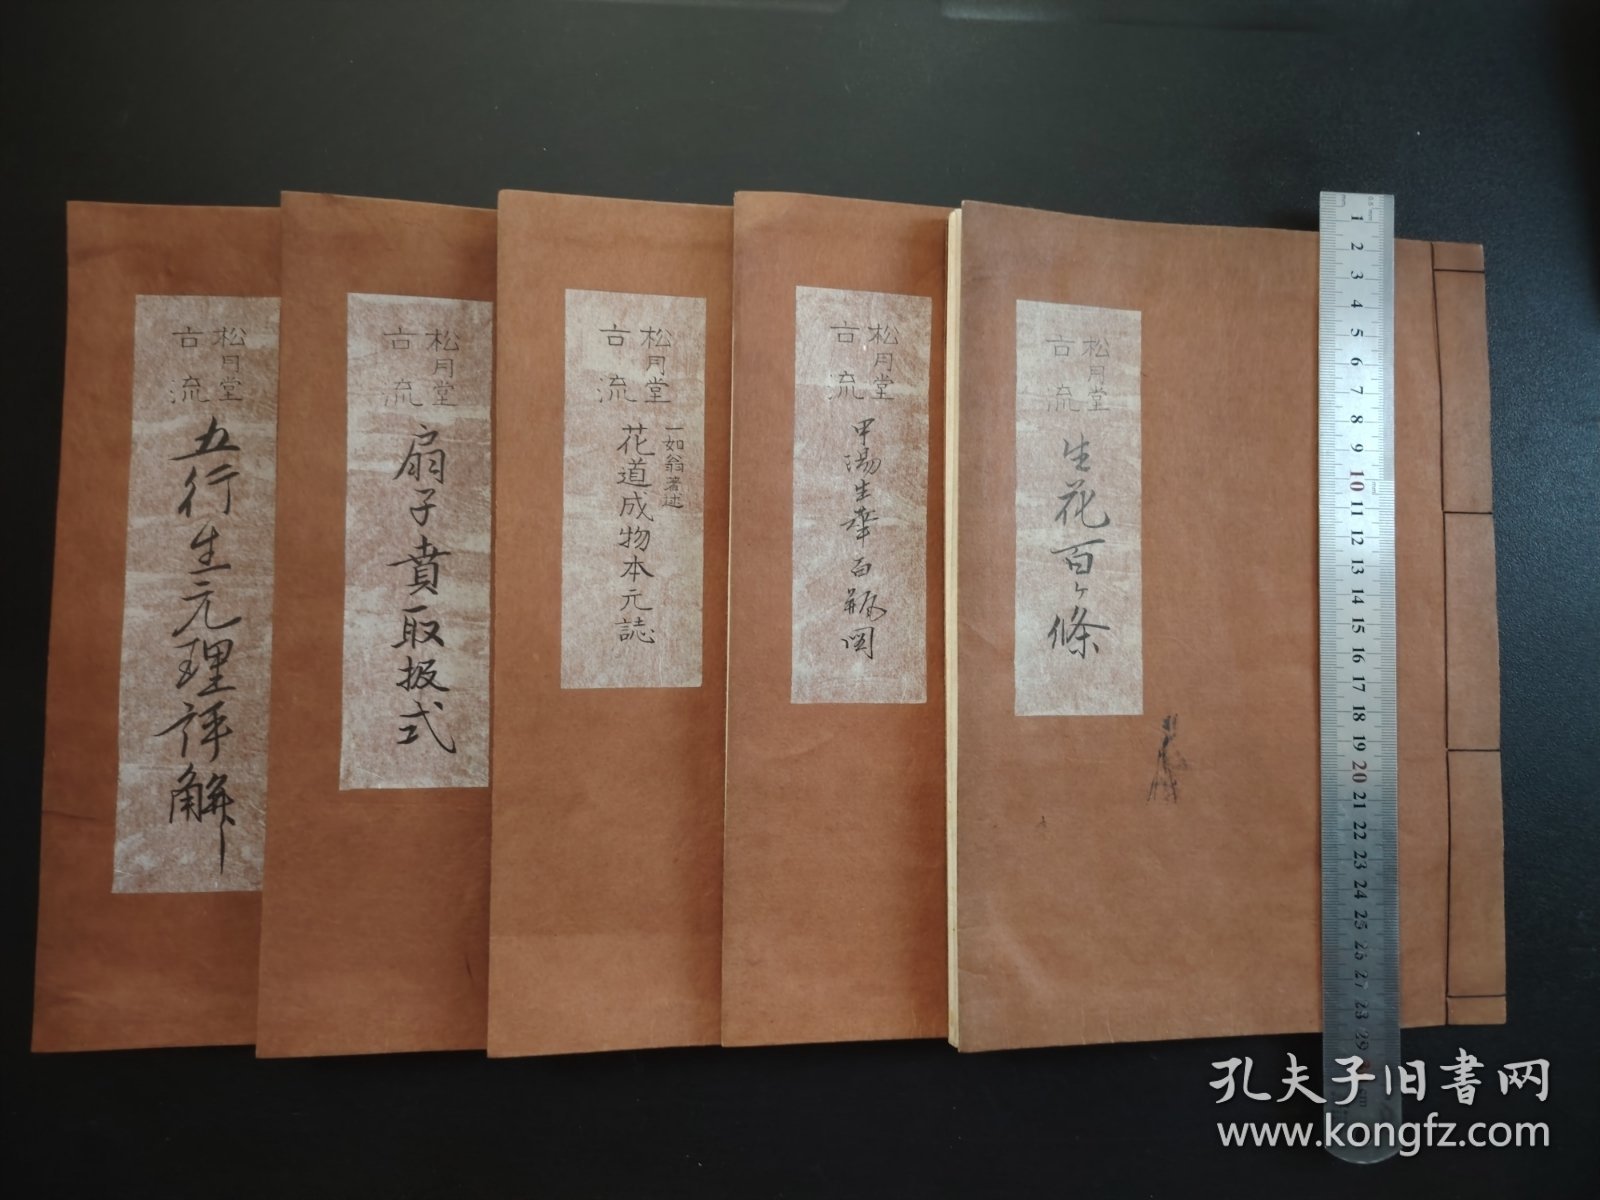 松月堂
古流
生花百ヶ條
松月堂
古流
甲陽生華百瓶図
松月堂
古流
一如翁著述
花道成物本元誌
松月堂
古流
扇子賁取扱式
松月堂
古流
五行生元理評解
1 2 3 4 5 6 7 8 9 10 11 12 13 14 15 16 17 18 19 20 21 22 23 24 25 26 27 28 29
孔夫子旧书网
www.kongfz.com